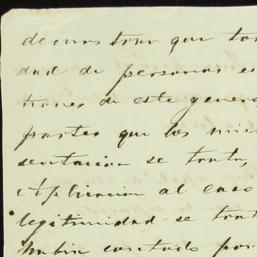 demostrar que
dad de personas es
de este genero
partes que los mis
sentacion se trata,
Aplicacion al caso
legitimidad se trat
habia costado por